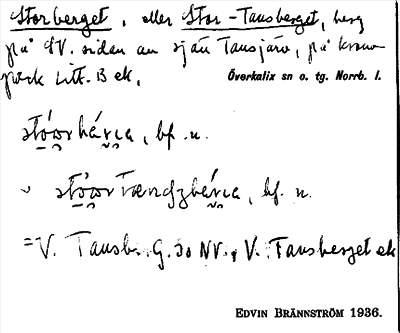 Storberget, eller Stor-Tansberget, berg
på NV. sidan av sjön Tansjärv, på krono-
park Litt. B ek.
Överkalix sn o. tg. Norrb. l.
bf. n.
bf. n.
=V. Tansb. G. 30 NV., V. Tansberget ek
EDVIN BRÄNNSTRÖM 1936.